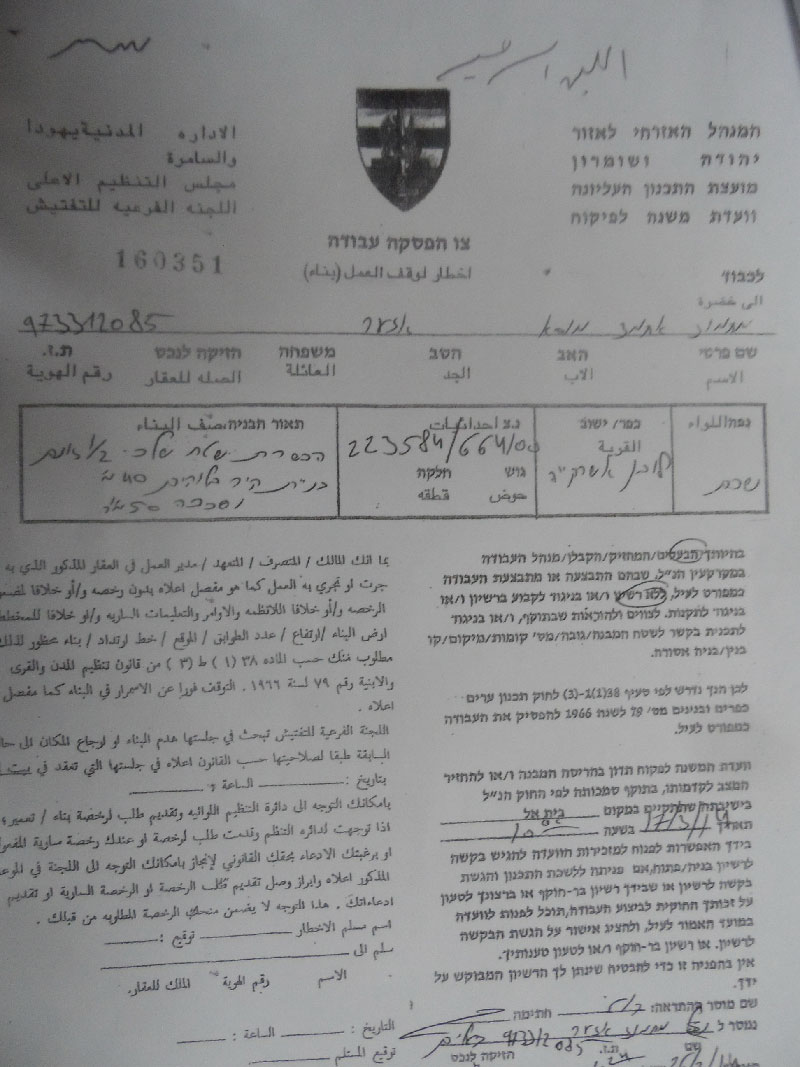 الادارة المدنية يهودا
والسامرة
مجلس التنظيم الاعلى
اللجنه الفرعيه للتفتيش
המנהל האזרחי לאזור
יהודה ושומרון
מועצת התכנון העליונה
וועדת משנה לפיקוח
160351
צו הפסקה עבודה
اخطار لوقف العمل (بناء)
לכבוד
الى حضرة
973312085
שם פרטי האב הסב משפחה חזיקה לנכס ת.ז.
الاسم الاب الجد العائلة الصله للعقار رقم الهوية
נפת/לואי כפר/ישוב נ.צ احداثيات תאור הבניה وصف البناء
القرية 223584/66410
גוש חלקה
حوض قطعه
40
50
בהיותך/הבעלים/המחזיק/הקבלן/מנהל העבודה
במקרקעין הנ"ל, שבהם התבצעה או מתבצעת העבודה
כמפורט לעיל, ללא רשיון ו/או בניגוד לקבוע ברשיון ו/או
בניגוד לתקנות, לצווים ולהוראות שבתוקף, ו/או בניגוד
לתכנית בקשר לשטח המבנה/גובה/מס' קומות/מיקום/קו
בנין/בניה אסורה.
לכן הנך נדרש לפי סעיף 38(1)-(3) לחוק תכנון ערים
כפרים ובנינים מס' 79 לשנת 1966 להפסיק את העבודה
כמפורט לעיל.
וועדת המשנה לפקוח תדון בהריסת המבנה ו/או להחזיר
המצב לקדמותו, בתוקף סמכותה לפי החוק הנ"ל
בישיבתה שתתקיים במקום בית אל
תאריך 17/3/14 בשעה
בידך האפשרות לפנות למזכירות הוועדה להגיש בקשה
לרשיון בניה/פתוח, אם פניתה ללשכת התכנון והגשת
בקשה לרשיון או שבידך רשיון בר-תוקף או ברצונך לטעון
על זכותך החוקית לביצוע העבודה, תוכל לפנות לוועדה
במועד האמור לעיל, ולהציג אישור על הגשת הבקשה
לרשיון, או רשיון בר-תוקף ו/או לטעון טענותיך.
אין בהפניה זו כדי להבטיח שינתן לך הרשיון המבוקש על
ידך.
שם מוסר ההתראה: חתימה
נמסר ל
שם ת.ז. חזיקה לנכס
بما انك المالك / المتصرف / المتعهد / مدير العمل في العقار المذكور الذي به
جرت او تجري به العمل كما هو مفصل اعلاه بدون رخصه و/أو خلافا
الرخصه و/أو خلافا للانظمه والاوامر والتعليمات الساريه و/او خلافا للمخطط
ارض البناء / ارتفاع / عدد الطوابق / الموقع / خط ارتداد / بناء محظور لذلك
مطلوب منك حسب الماده ٣٨ (١) ط (٣) من قانون تنظيم المدن والقرى
والابنية رقم ٧٩ لسنة ١٩٦٦. التوقف فورا عن الاستمرار في البناء كما مفصل
اعلاه.
اللجنة الفرعية للتفتيش تبحث في جلستها هدم البناء او ارجاع المكان الى
السابقة طبقا لصلاحيتها حسب القانون اعلاه في جلستها التي تعقد في
بتاريخ: الساعة
بامكانك التوجه الى دائرة التنظيم اللوائيه وتقديم طلب لرخصة بناء / تعمير؛
اذا توجهت لدائره التنظم وقدمت طلب لرخصة او عندك رخصة سارية
او برغبتك الادعاء بحقك القانوني لإنجاز بامكانك التوجه الى اللجنة في
المذكور اعلاه وابراز وصل تقديم طلب الرخصة او الرخصة السارية او تقديم
ادعاءاتك. هذا التوجه لا يضمن منحك الرخصة المطلوبه من قبلك.
اسم مسلم الاخطار توقيع:
سلم الى
الاسم رقم الهوية المالك للعقار.
التاريخ: الساعة:
توقيع المستلم